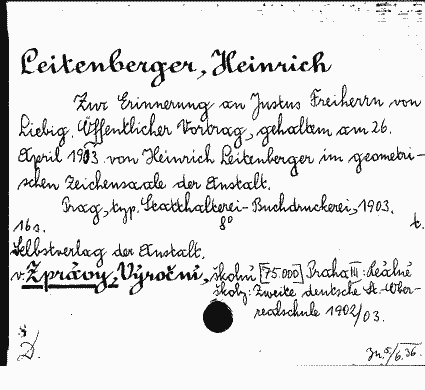 Leitenberger, Heinrich
Zur Erinnerung an Justus Freiherrn von
Liebig. Öffentlicher Vortrag, gehalten am 26.
April 1903 von Heinrich Leitenberger im geometri-
schen Zeichensaale der Anstalt.
Prag, typ. Statthalterei-Buchdruckerei, 1903.
16 s. 8° t.
Selbstverlag der Anstalt.
v Zprávy, Výroční, školní [75.000] Praha III: Reálné
školy: Zweite deutsche St.-Ober-
realschule 1902/03.
D.
5/6.36.